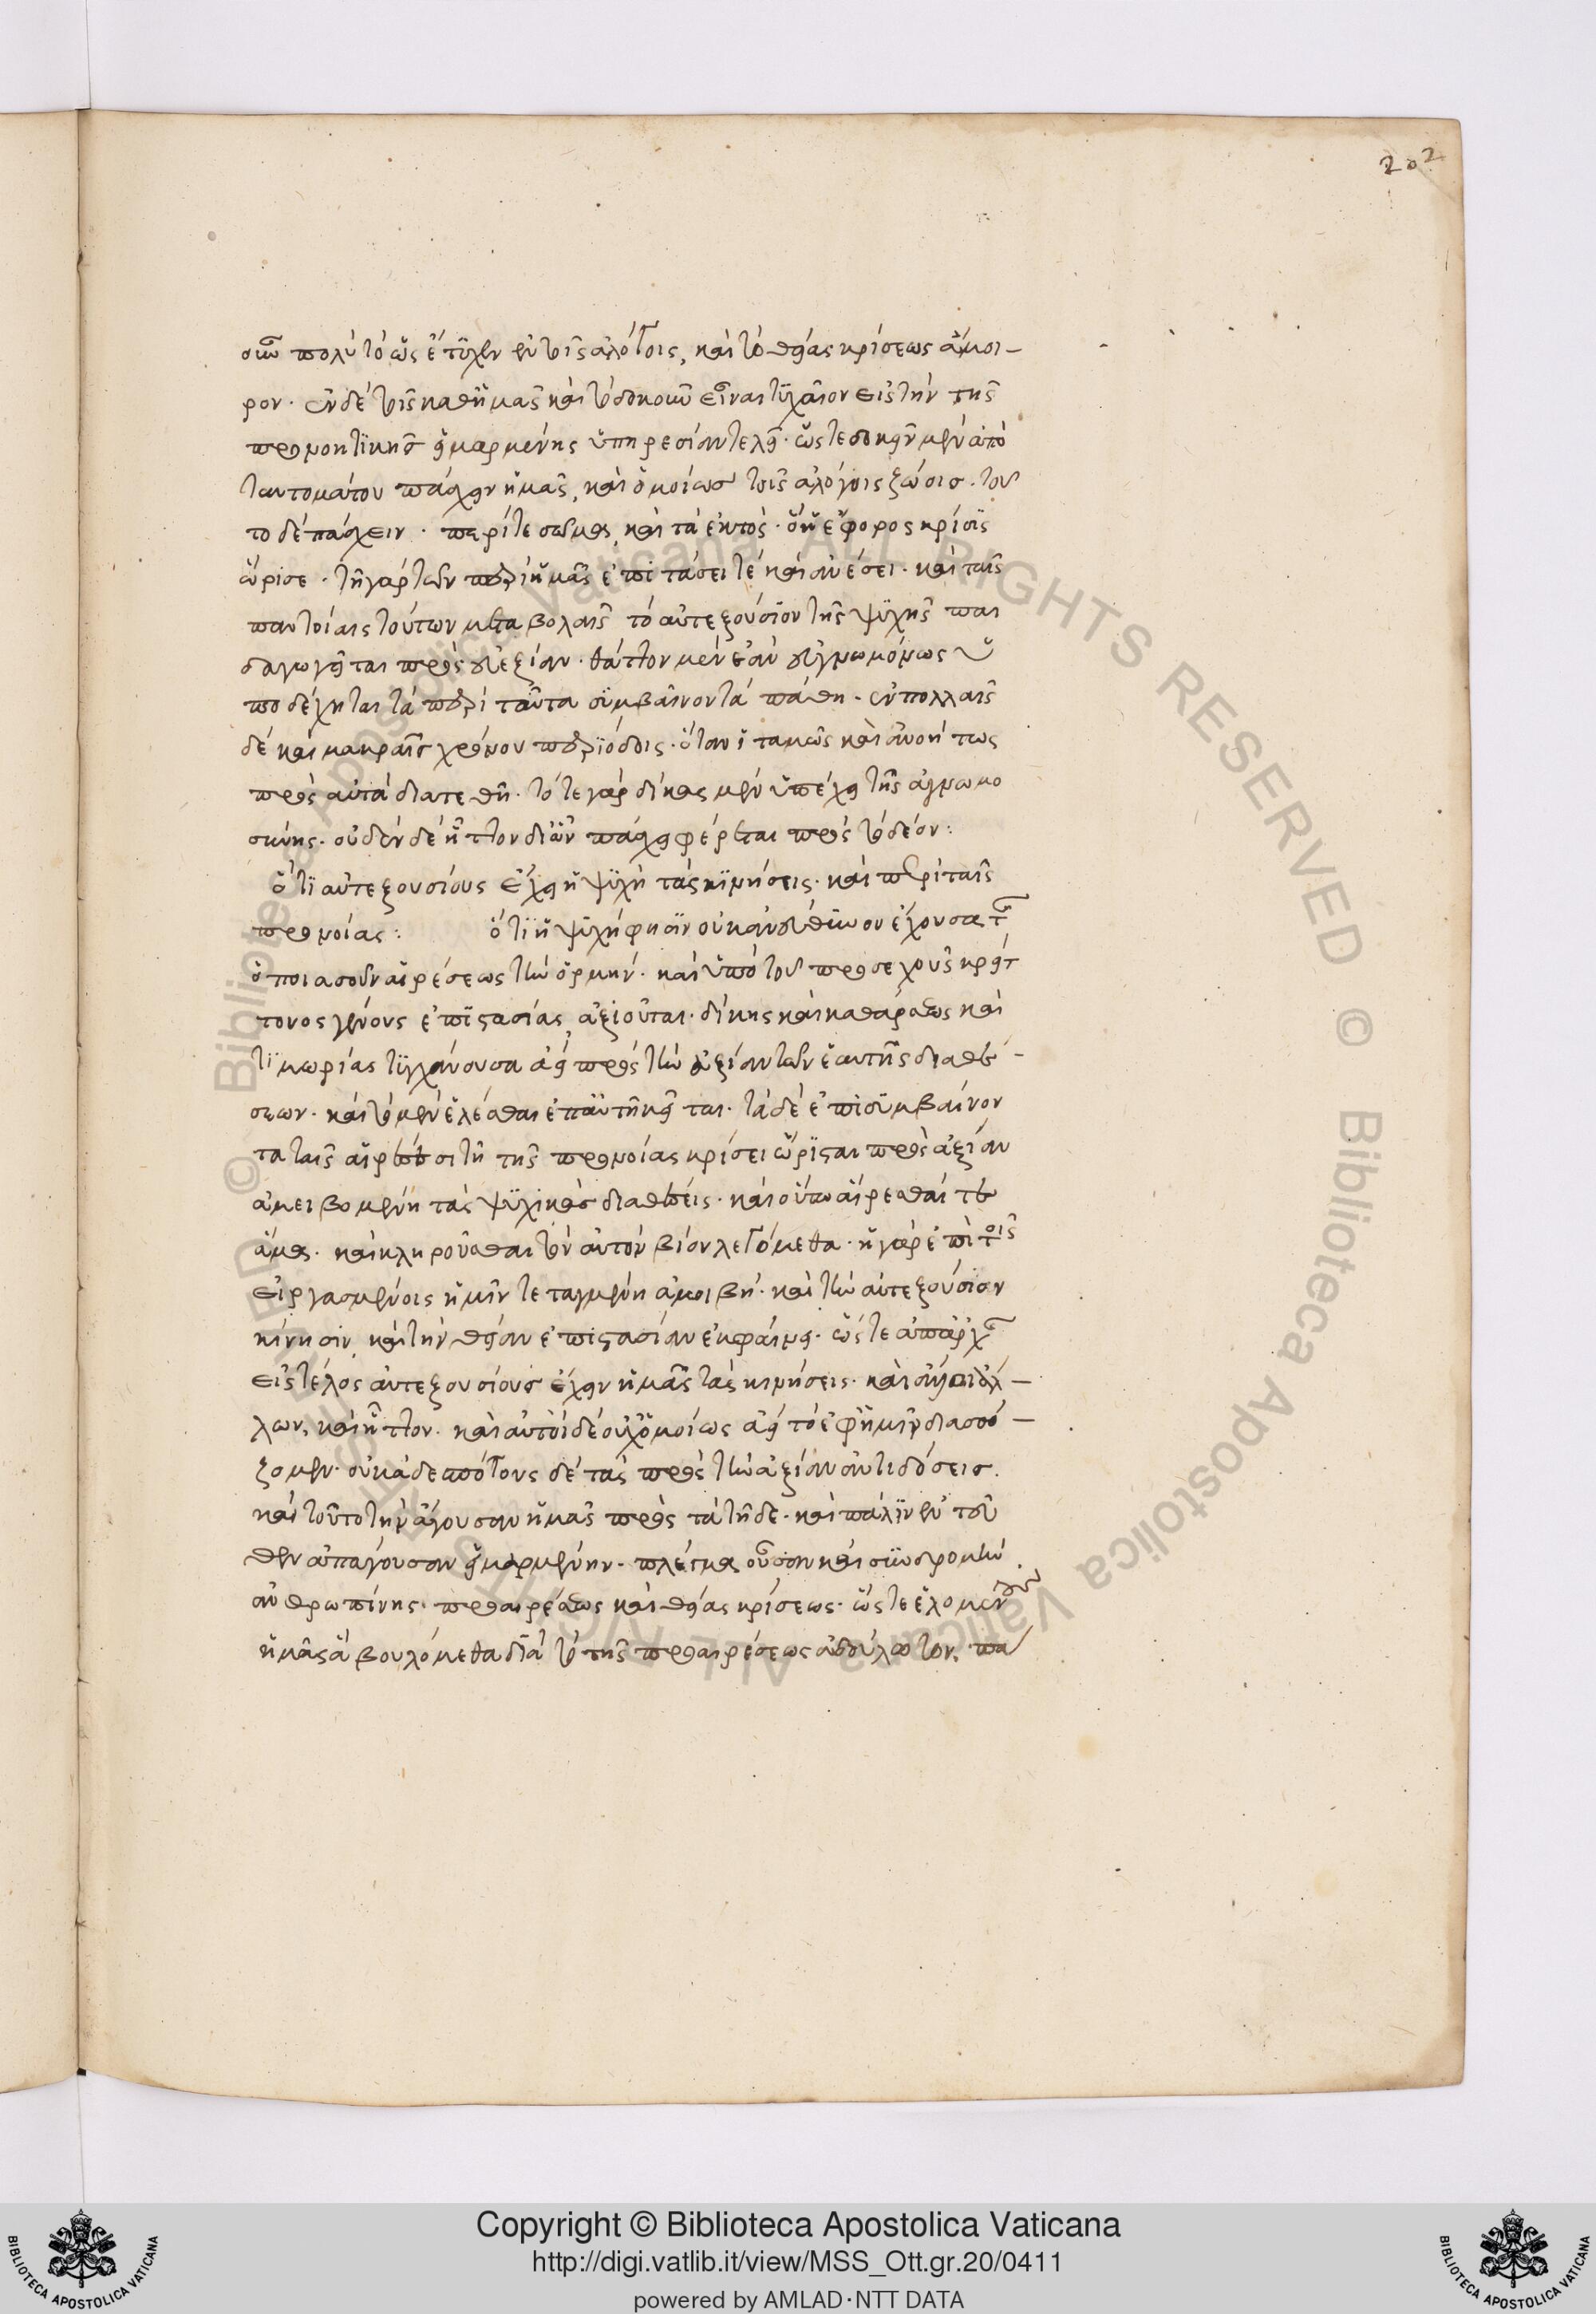 202
σιν πολὺ τὸ ὡς ἔτυχεν ἐν τοῖς ἀλόγοις, καὶ τὸ θείας κρίσεως ἄμοι-
ρον. ἐν δὲ τοῖς καθ' ἡμᾶς καὶ τὸ δοκοῦν εἶναι τυχαῖον εἰς τὴν τῆς
προνοητικῆς εἱμαρμένης ὑπηρεσίαν τελεῖ. ὥστε δοκεῖν μὲν ἀπὸ
ταυτομάτου πάσχειν ἡμᾶς, καὶ ὁμοίως τοῖς ἀλόγοις ζώοις. τοῦ
το δὲ πάσχειν. περί τε σῶμα, καὶ τὰ ἐκτός. ὃ ἡ ἔφορος κρίσις
ὥρισε. τῇ γὰρ τῶν περὶ ἡμᾶς ἐπιτάσει τὲ καὶ ἀνέσει. καὶ ταῖς
παντοίαις τούτων μεταβολαῖς τὸ αὐτεξούσιον τῆς ψυχῆς παι
δαγωγεῖται πρὸς εὐεξίαν. θᾶττον μὲν ἐὰν εὐγνωμόνως ὑ
ποδέχηται τὰ περὶ ταῦτα συμβαίνοντα πάθη. ἐν πολλαῖς
δὲ καὶ μακραῖς χρόνου περιόδοις. ὅταν ἰταμῶς καὶ ἀνοήτως
πρὸς αὐτὰ διατεθῇ. τότε γὰρ δίκας μὲν ὑπέχει τῆς ἀγνωμο
σύνης. οὐδὲν δὲ ἧττον δι' ὧν πάσχει φέρεται πρὸς τὸ δέον:
ὅτι αὐτεξουσίους ἔχει ἡ ψυχὴ τὰς κινήσεις. καὶ περὶ τῆς
προνοίας: ὅτι ἡ ψυχή φησιν οὐκ ἀνεύθυνον ἔχουσα τῆς
ὁποιασοῦν αἱρέσεως τὴν ὁρμήν. καὶ ὑπὸ τοῦ προσεχοῦς κρείτ
τονος γένους ἐπιστασίας ἀξιοῦται. δίκης καὶ καθάρσεως καὶ
τιμωρίας τυγχάνουσα ἀεὶ πρὸς τὴν ἀξίαν τῶν ἑαυτῆς διαθέ-
σεων. καὶ τὸ μὲν ἑλέσθαι ἐπ' αὐτῇ κεῖται. τὰ δὲ ἐπισυμβαίνον
τα ταῖς αἱρέσεσι τῇ τῆς προνοίας κρίσει ὥρισται πρὸς ἀξίαν
ἀμειβομένῃ τὰς ψυχικὰς διαθέσεις. καὶ οὕτω αἱρεῖσθαί τε
ἅμα. καὶ κληροῦσθαι τὸν αὐτὸν βίον λεγόμεθα. ἡ γὰρ ἐπὶ τοῖς
εἰργασμένοις ἡμῖν τεταγμένη ἀμοιβή. καὶ τὴν αὐτεξούσιον
κίνησιν, καὶ τὴν θείαν ἐπιστασίαν ἐκφαίνει. ὥστε ἀπ' ἀρχῆς
εἰς τέλος αὐτεξουσίους ἔχειν ἡμᾶς τὰς κινήσεις.
λων, καὶ ἧττον. καὶ αὐτοὶ δὲ οὐχ ὁμοίως ἀεὶ τὸ ἐφ' ἡμῖν διασῴ-
ζομεν. οὐκ ἀδεσπότους δὲ τὰς πρὸς τὴν ἀξίαν ἀντιδόσεις.
καὶ τοῦτο τὴν ἄγουσαν ἡμᾶς πρὸς τὰ τῇδε. καὶ πάλιν ἐντεῦ
θεν ἀπάγουσαν εἱμαρμένην. πλέγμα οὖσαν καὶ συνδρομὴν
ἀνθρωπίνης προαιρέσεως καὶ θείας κρίσεως. ὥστε ἑλομένους
ἡμᾶς ἃ βουλόμεθα διὰ τὸ τῆς προαιρέσεως ἀδούλωτον. πα
Copyright © Biblioteca Apostolica Vaticana
http://digi.vatlib.it/view/MSS_Ott.gr.20/0411
powered by AMLAD·NTT DATA